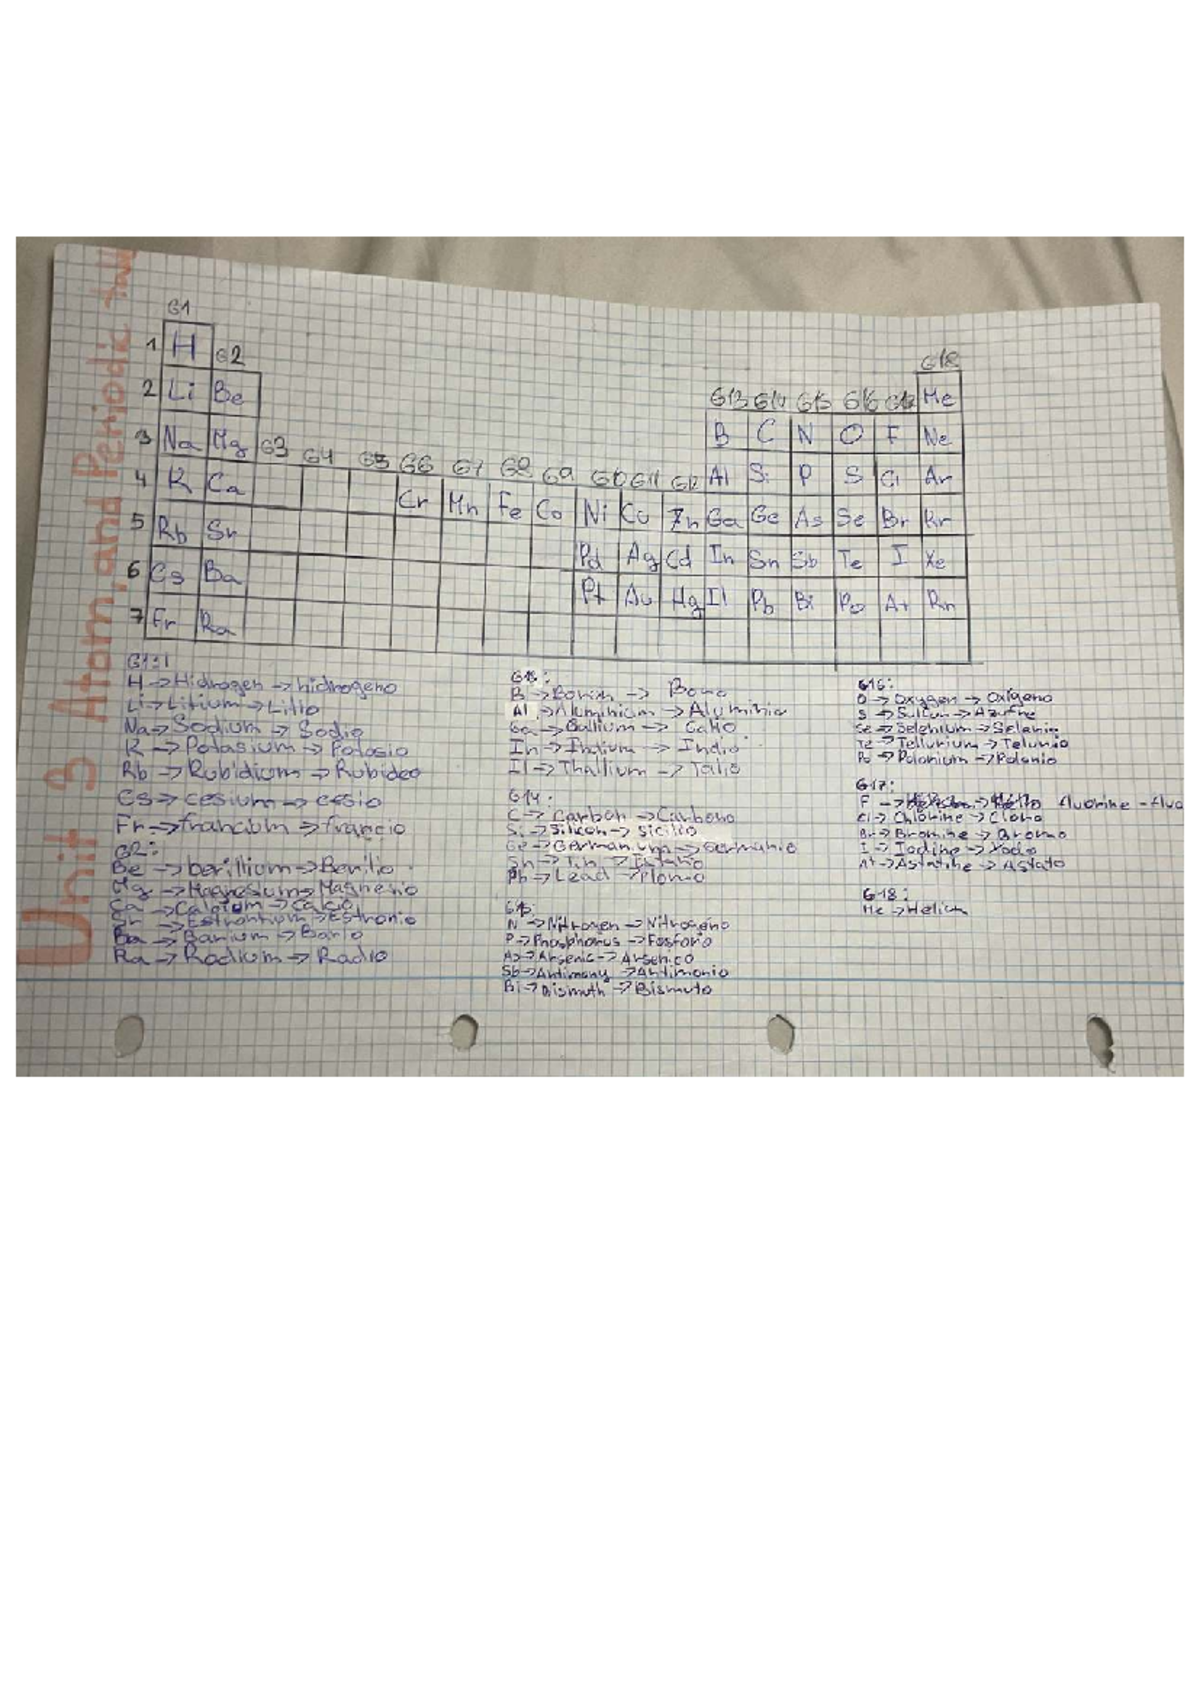 Unit 3 Atom, and Periodic
G1
1 H G2 G18
2 Li Be G13 G14 G15 G16 G17 He
3 Na Mg G3 G4 G5 G6 G7 G8 G9 G10 G11 G12 B C N O F Ne
4 K Ca Cr Mn Fe Co Ni Cu Zn Al Si P S Cl Ar
5 Rb Sr Pd Ag Cd Ga Ge As Se Br Kr
6 Cs Ba Pt Au Hg In Sn Sb Te I Xe
7 Fr Ra Tl Pb Bi Po At Rn
G1:
H → Hidrogen → hidrogeno
Li → Litium → Litio
Na → Sodium → Sodio
K → Potasium → Potasio
Rb → Rubidium → Rubideo
Cs → cesium → cesio
Fr → francium → francio
G2:
Be → berillium → Berilio
Mg → Magnesium → Magnesio
Ca → Calcium → Calcio
Sr → Estrontium → Estronio
Ba → Barium → Bario
Ra → Radium → Radio
G13:
B → Borium → Boro
Al → Aluminium → Aluminio
Ga → Gallium → Galio
In → Indium → Indio
Tl → Thallium → Talio
G14:
C → Carbon → Carbono
Si → Silicon → Sicilio
Ge → Germanium → Germanio
Sn → Tin → Estaño
Pb → Lead → Plomo
G15:
N → Nitrogen → Nitrogeno
P → Phosphorus → Fosforo
As → Arsenic → Arsenico
Sb → Antimony → Antimonio
Bi → Bismuth → Bismuto
G16:
O → Oxygen → Oxigeno
S → Sulfur → Azufre
Se → Selenium → Selenio
Te → Tellurium → Telurio
Po → Polonium → Polonio
G17:
F → fluorine - fluo
Cl → Chlorine → Cloro
Br → Bromine → Bromo
I → Iodine → Yodo
At → Astatine → Astato
G18:
He → Helium